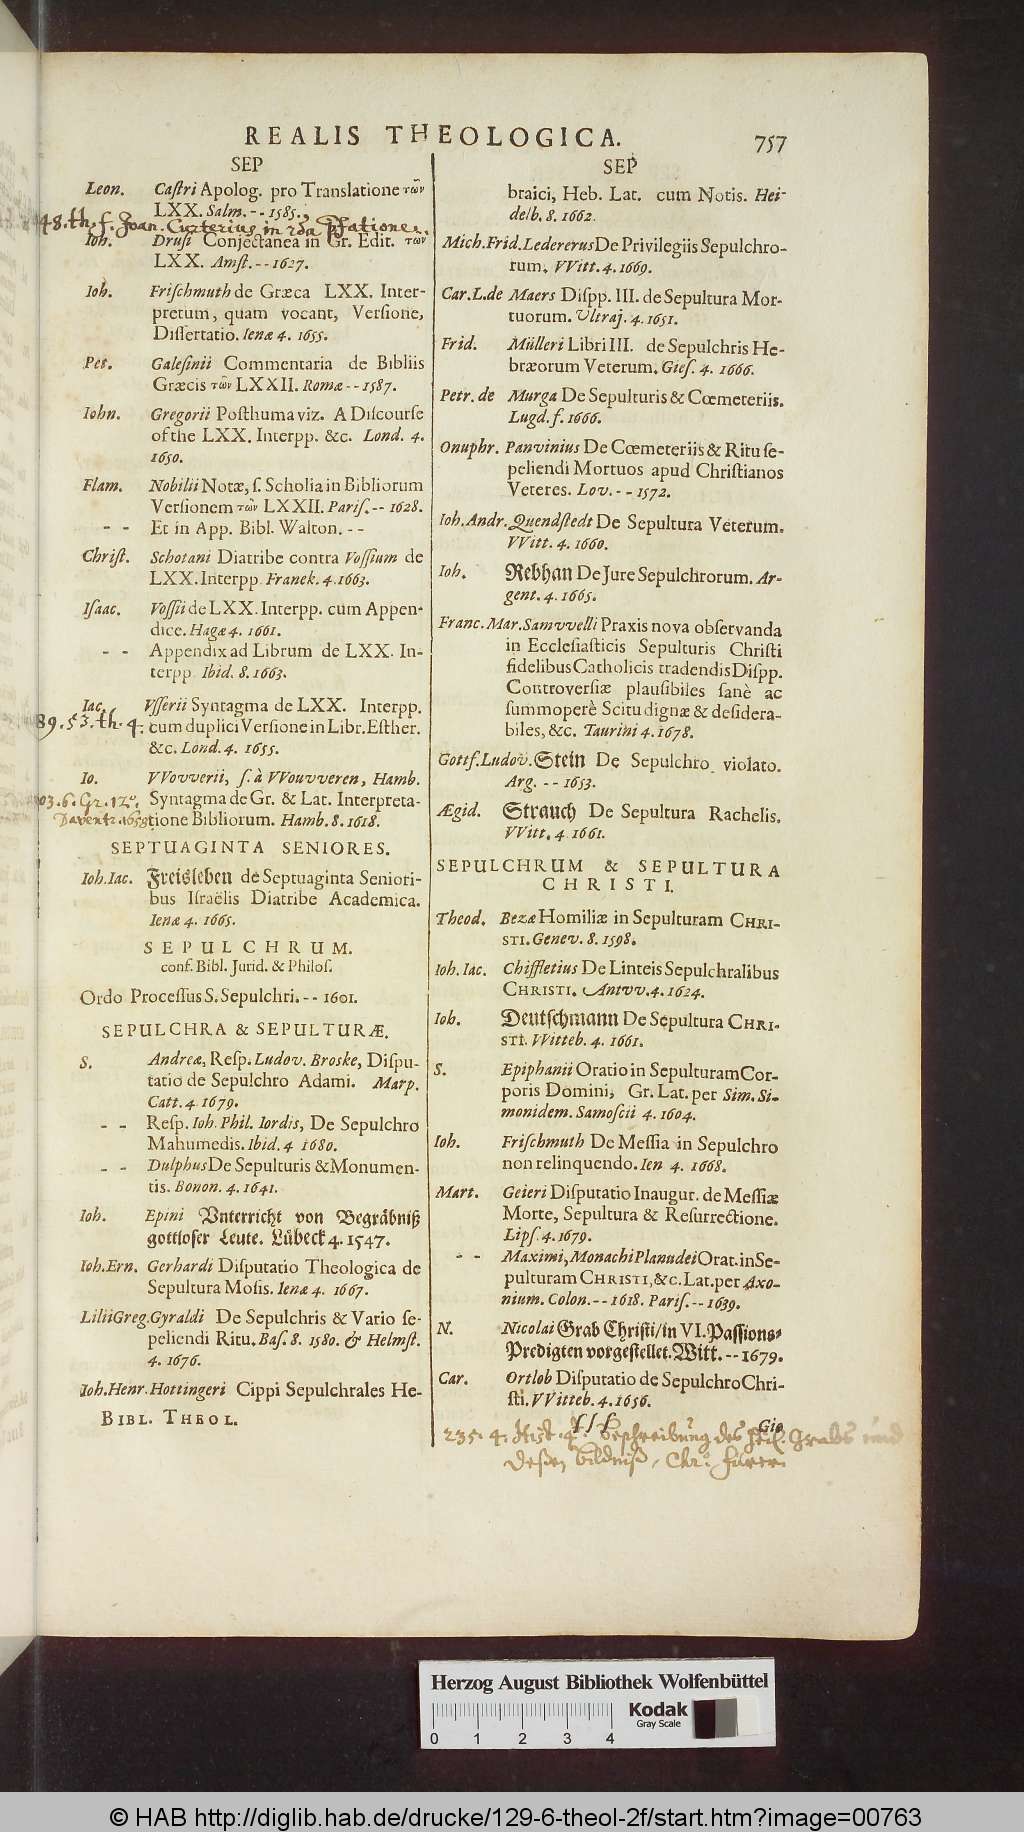 REALIS THEOLOGICA. 757
SEP
Leon. Caſtri Apolog. pro Translatione τῶν
LXX. Salm. -- 1585.
48. th. f. Joan. Curterius in
Ioh. Druſi Conjectanea in Gr. Edit. τῶν
LXX. Amſt. -- 1627.
Ioh. Friſchmuth de Græca LXX. Inter-
pretum, quam vocant, Verſione,
Diſſertatio. Ienæ 4. 1655.
Pet. Galeſinii Commentaria de Bibliis
Græcis τῶν LXXII. Romæ -- 1587.
Iohn. Gregorii Poſthuma viz. A Diſcourſe
of the LXX. Interpp. &c. Lond. 4.
1650.
Flam. Nobilii Notæ, ſ. Scholia in Bibliorum
Verſionem τῶν LXXII. Pariſ. -- 1628.
-- Et in App. Bibl. Walton. --
Chriſt. Schotani Diatribe contra Voſſium de
LXX. Interpp. Franek. 4. 1663.
Iſaac. Voſſii de LXX. Interpp. cum Appen-
dice. Hagæ 4. 1661.
-- Appendix ad Librum de LXX. In-
terpp. Ibid. 8. 1663.
Iac. Vſſerii Syntagma de LXX. Interpp.
89. 53. th. 4. cum duplici Verſione in Libr. Eſther.
&c. Lond. 4. 1655.
Io. VVovverii, ſ. à VVouvveren, Hamb.
03. 6. Gr. 12º. Syntagma de Gr. & Lat. Interpreta-
Daventr. 1658 tione Bibliorum. Hamb. 8. 1618.
SEPTUAGINTA SENIORES.
Ioh. Iac. Freisleben de Septuaginta Seniori-
bus Iſraëlis Diatribe Academica.
Ienæ 4. 1665.
SEPULCHRUM.
conf. Bibl. Jurid. & Philoſ.
Ordo Proceſſus S. Sepulchri. -- 1601.
SEPULCHRA & SEPULTURÆ.
S. Andreæ, Reſp. Ludov. Broske, Diſpu-
tatio de Sepulchro Adami. Marp.
Catt. 4. 1679.
-- Reſp. Ioh. Phil. Iordis, De Sepulchro
Mahumedis. Ibid. 4 1680.
-- Dulphus De Sepulturis & Monumen-
tis. Bonon. 4. 1641.
Ioh. Epini Vnterricht von Begräbniß
gottloſer Leute. Lübeck 4. 1547.
Ioh. Ern. Gerhardi Diſputatio Theologica de
Sepultura Moſis. Ienæ 4. 1667.
Lilii Greg. Gyraldi De Sepulchris & Vario ſe-
peliendi Ritu. Baſ. 8. 1580. & Helmſt.
4. 1676.
Ioh. Henr. Hottingeri Cippi Sepulchrales He-
BIBL. THEOL.
SEP
braici, Heb. Lat. cum Notis. Hei-
delb. 8. 1662.
Mich. Frid. Ledererus De Privilegiis Sepulchro-
rum. VVitt. 4. 1669.
Car. L. de Maers Diſpp. III. de Sepultura Mor-
tuorum. Ultraj. 4. 1651.
Frid. Mülleri Libri III. de Sepulchris He-
bræorum Veterum. Gieſ. 4. 1666.
Petr. de Murga De Sepulturis & Cœmeteriis.
Lugd. f. 1666.
Onuphr. Panvinius De Cœmeteriis & Ritu ſe-
peliendi Mortuos apud Chriſtianos
Veteres. Lov. -- 1572.
Ioh. Andr. Quendſtedt De Sepultura Veterum.
VVitt. 4. 1660.
Ioh. Rebhan De Jure Sepulchrorum. Ar-
gent. 4. 1665.
Franc. Mar. Samvvelli Praxis nova obſervanda
in Eccleſiaſticis Sepulturis Chriſti
fidelibus Catholicis tradendis Diſpp.
Controverſiæ plauſibiles ſanè ac
ſummoperè Scitu dignæ & deſidera-
biles, &c. Taurini 4. 1678.
Gottf. Ludov. Stein De Sepulchro violato.
Arg. -- 1653.
Ægid. Strauch De Sepultura Rachelis.
VVitt. 4 1661.
SEPULCHRUM & SEPULTURA
CHRISTI.
Theod. Bezæ Homiliæ in Sepulturam CHRI-
STI. Genev. 8. 1598.
Ioh. Iac. Chiffletius De Linteis Sepulchralibus
CHRISTI. Antvv. 4. 1624.
Ioh. Deutſchmann De Sepultura CHRI-
STI. Witteb. 4. 1661.
S. Epiphanii Oratio in Sepulturam Cor-
poris Domini, Gr. Lat. per Sim. Si-
monidem. Samoſcii 4. 1604.
Ioh. Friſchmuth De Meſſia in Sepulchro
non relinquendo. Ien 4. 1668.
Mart. Geieri Diſputatio Inaugur. de Meſſiæ
Morte, Sepultura & Reſurrectione.
Lipſ. 4. 1679.
-- Maximi, Monachi Planudei Orat. in Se-
pulturam CHRISTI, &c. Lat. per Axo-
nium. Colon. -- 1618. Pariſ. -- 1639.
N. Nicolai Grab Chriſti/ in VI. Paſſions-
Predigten vorgeſtellet. Witt. -- 1679.
Car. Ortlob Diſputatio de Sepulchro Chri-
ſti. VVitteb. 4. 1656.
ſſſ Gio
235. 4. Hist. 4. Beschreibung des Heil. Grabs und
deßen bildniß, Chr. fürer.
Herzog August Bibliothek Wolfenbüttel
Kodak
Gray Scale
0 1 2 3 4
© HAB http://diglib.hab.de/drucke/129-6-theol-2f/start.htm?image=00763